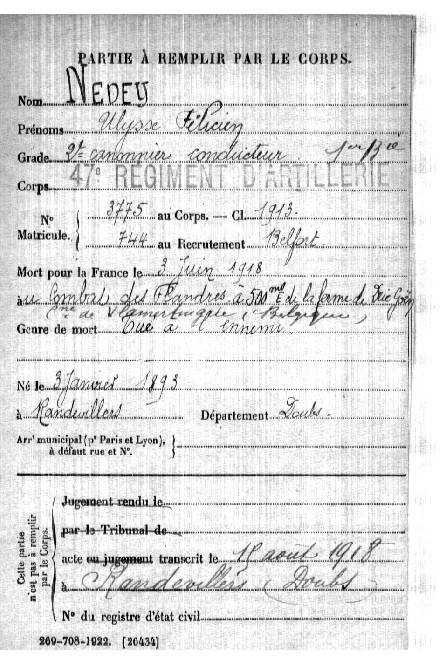 PARTIE À REMPLIR PAR LE CORPS.
Nom NEDEY
Prénoms Ulysse Félicien
Grade 2e canonnier conducteur 1ère Bie
Corps 47e REGIMENT D'ARTILLERIE
N° Matricule. 3775 au Corps. — Cl. 1913.
744 au Recrutement Belfort
Mort pour la France le 3 Juin 1918
au Combat des Flandres à 500 m E de la ferme de
Cne de Vlamertinghe (Belgique)
Genre de mort Tué à ennemi
Né le 3 Janvier 1893
à Randevillers Département Doubs.
Arrt municipal (pr Paris et Lyon),
à défaut rue et N°.
Cette partie n'est pas à remplir par le Corps.
Jugement rendu le
par le Tribunal de
acte ou jugement transcrit le 18 août 1918
à Randevillers (Doubs)
N° du registre d'état civil
269-708-1922. [26434]